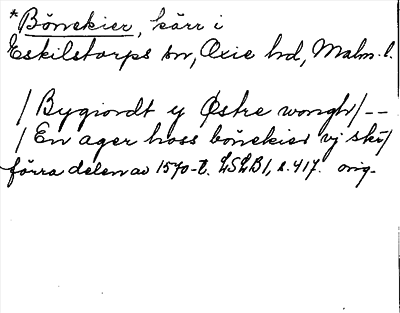 *Bönekier, kärr i
Eskilstorps sn, Oxie hd, Malm. l.
/Bygiordt y Østre wongh/--
/En ager hoss bönekier vj skr/
förra delen av 1570-t. LSLB1, s. 417. orig.